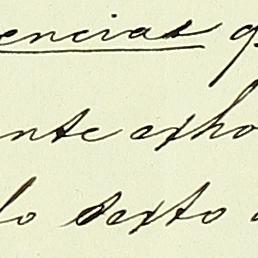 encias q
ente exho
do sexto